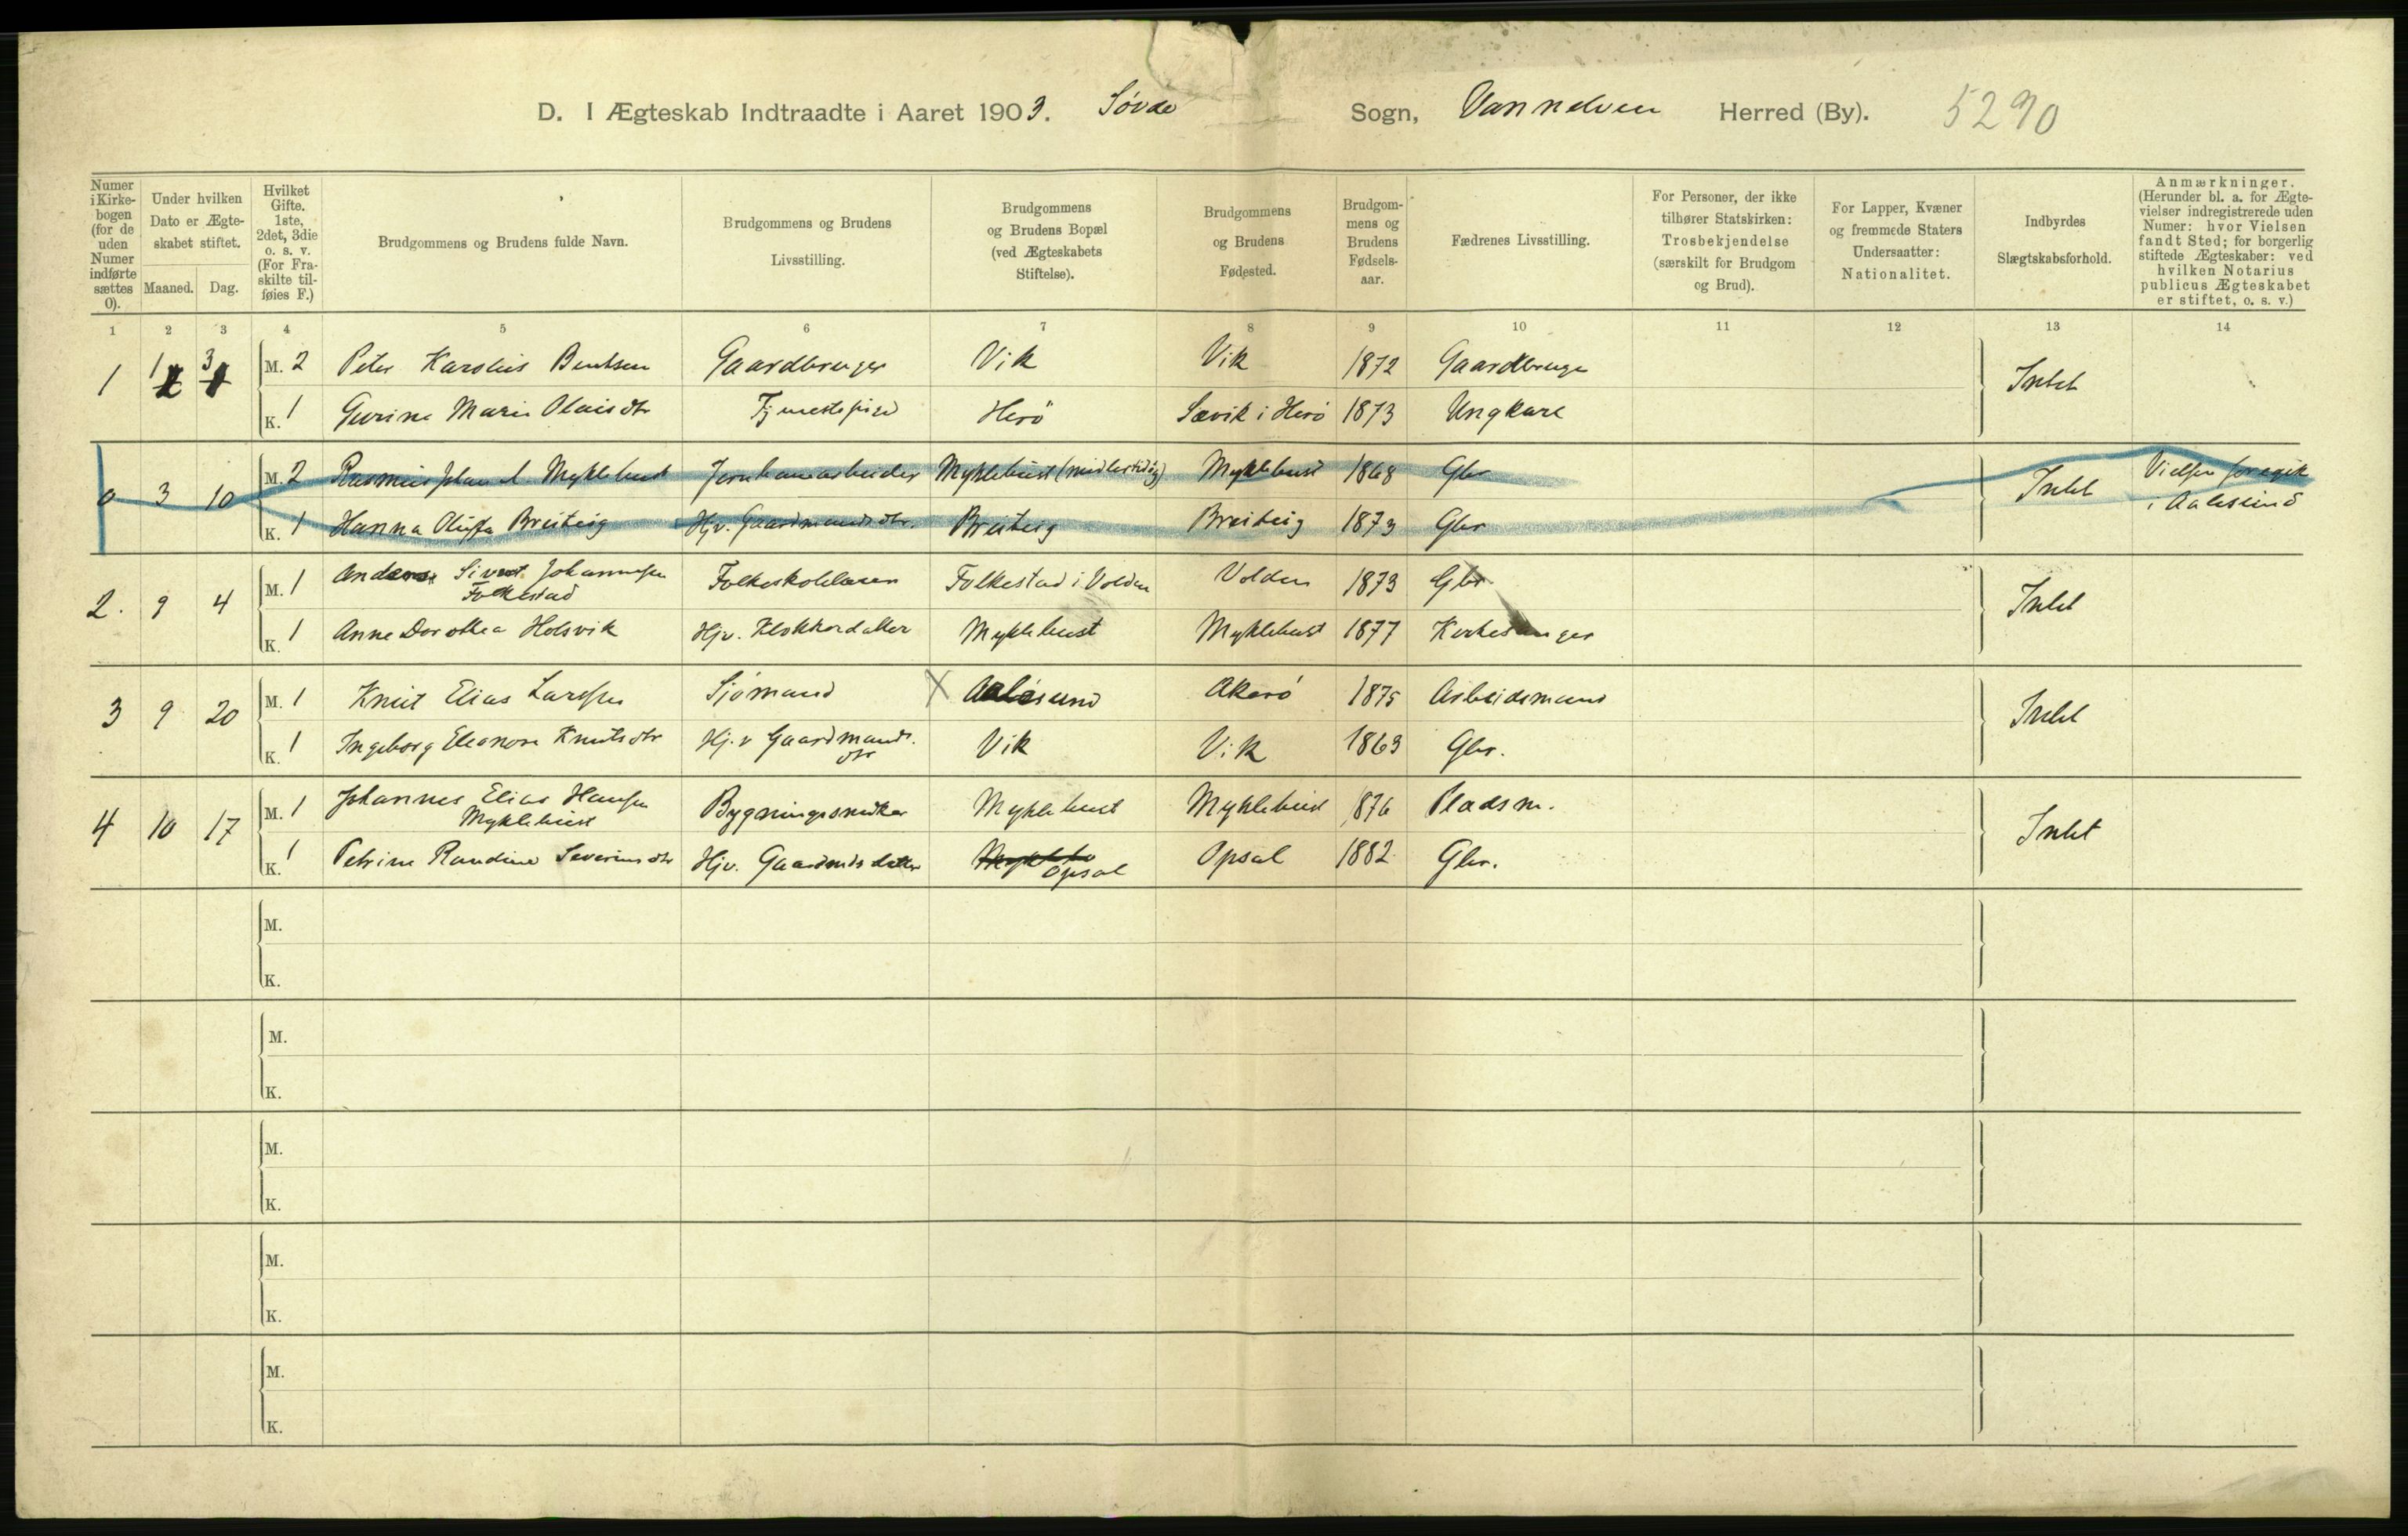 D. I Ægteskab Indtraadte i Aaret 1903. Søvde Sogn, Vannelven Herred (By). 5290
Numer i Kirkebogen (for de uden Numer indførte sættes 0).
Under hvilken Dato er Ægteskabet stiftet.
Maaned. Dag.
Hvilket Gifte. 1ste, 2det, 3die o. s. v. (For Fraskilte tilføies F.)
Brudgommens og Brudens fulde Navn.
Brudgommens og Brudens Livsstilling.
Brudgommens og Brudens Bopæl (ved Ægteskabets Stiftelse).
Brudgommens og Brudens Fødested.
Brudgommens og Brudens Fødselsaar.
Fædrenes Livsstilling.
For Personer, der ikke tilhører Statskirken: Trosbekjendelse (særskilt for Brudgom og Brud).
For Lapper, Kvæner og fremmede Staters Undersaatter: Nationalitet.
Indbyrdes Slægtskabsforhold.
Anmærkninger. (Herunder bl. a. for Ægtevielser indregistrerede uden Numer: hvor Vielsen fandt Sted; for borgerlig stiftede Ægteskaber: ved hvilken Notarius publicus Ægteskabet er stiftet, o. s. v.)
1 2 3 4 5 6 7 8 9 10 11 12 13 14
1 1 3 M. 2 Peter Karolius Bentsen Gaardbruger Vik Vik 1872 Gaardbruger Intet
K. 1 Gurine Marie Olaisdtr Tjenestepige Herö Sævik i Herö 1873 Ungkarl
0 3 10 M. 2 Rasmus Johan A. Myklebust Jernbanearbeider Myklebust (midlertidig) Myklebust 1868 Gbr Intet Vielsen foregik
K. 1 Hanna Olufta Breiteig Hjv. Gaardmandsdtr. Breiteig Breiteig 1873 Gbr i Aalesund
2. 9 4 M. 1 Anders Sivert Johannessen Folkestad Folkeskolelærer Folkestad i Volden Volden 1873 Gbr. Intet
K. 1 Anne Dorothea Holsvik Hjv. Klokkerdatter Myklebust Myklebust 1877 Kirkesanger
3 9 20 M. 1 Knut Elias Larssen Sjömand X Aalesund Akerö 1875 Arbeidsmand Intet
K. 1 Ingeborg Eleanora Knutsdtr Hj. v Gaardmands. dtr Vik Vik 1863 Gbr.
4 10 17 M. 1 Johannes Elias Hansen Myklebust Bygningssnedker Myklebust Myklebust 1876 Pladsm. Intet
K. 1 Petrine Randine Severinsdtr Hjv. Gaardmdsdatter Opsal Opsal 1882 Gbr.
M.
K.
M.
K.
M.
K.
M.
K.
M.
K.